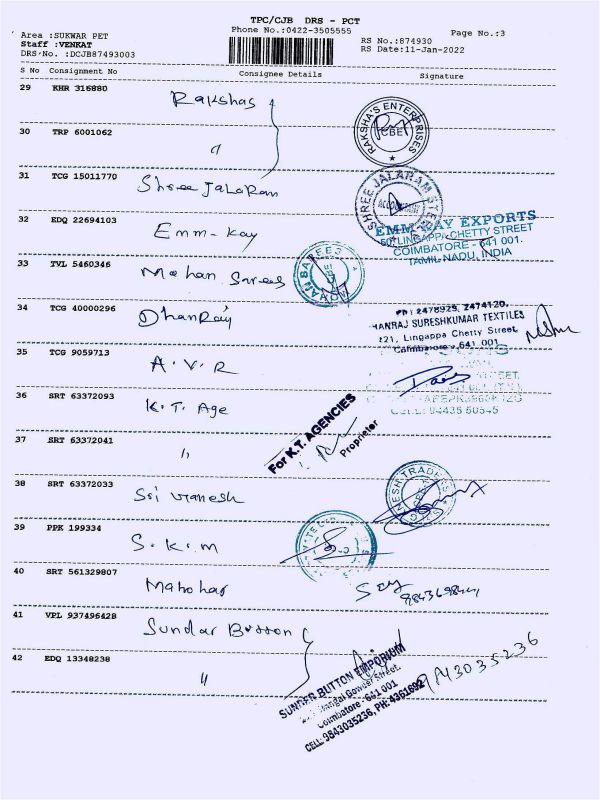 TPC/CJB DRS - PCT
Phone No.:0422-3505555
Page No.:3
Area :SUKWAR PET
Staff :VENKAT
DRS No. :DCJB87493003
RS No.:874930
RS Date:11-Jan-2022
S No Consignment No Consignee Details Signature
29 KHR 316880 Rakshas
RAKSHA'S ENTERPRISES
CBE
30 TRP 6001062 "
31 TCG 15011770 Shree Jalaram
SHREE JALARAM
32 EDQ 22694103 Emm-Kay
EMM KAY EXPORTS
50, LINGAPPA CHETTY STREET
COIMBATORE - 641 001.
TAMIL NADU, INDIA
33 TVL 5460346 Mohan Sarees
34 TCG 40000296 Dhanraj
PH: 2478929, 2474120.
HANRAJ SURESHKUMAR TEXTILES
221, Lingappa Chetty Street,
Coimbatore - 641 001
35 TCG 9059713 A.V.R
CELL: 04435 50545
36 SRT 63372093 K.T. Age
For K.T. AGENCIES
Proprietor
37 SRT 63372041 "
38 SRT 63372033 Sri Ganesh
39 PPK 199334 S.K.M
40 SRT 561329807 Manohar
9843698444
41 VPL 937496428 Sundar Button
42 EDQ 13348238 "
SUNDER BUTTON EMPORIUM
Gowder Street,
Coimbatore - 641 001
CELL: 9843035236, PH: 4361692
9843035236